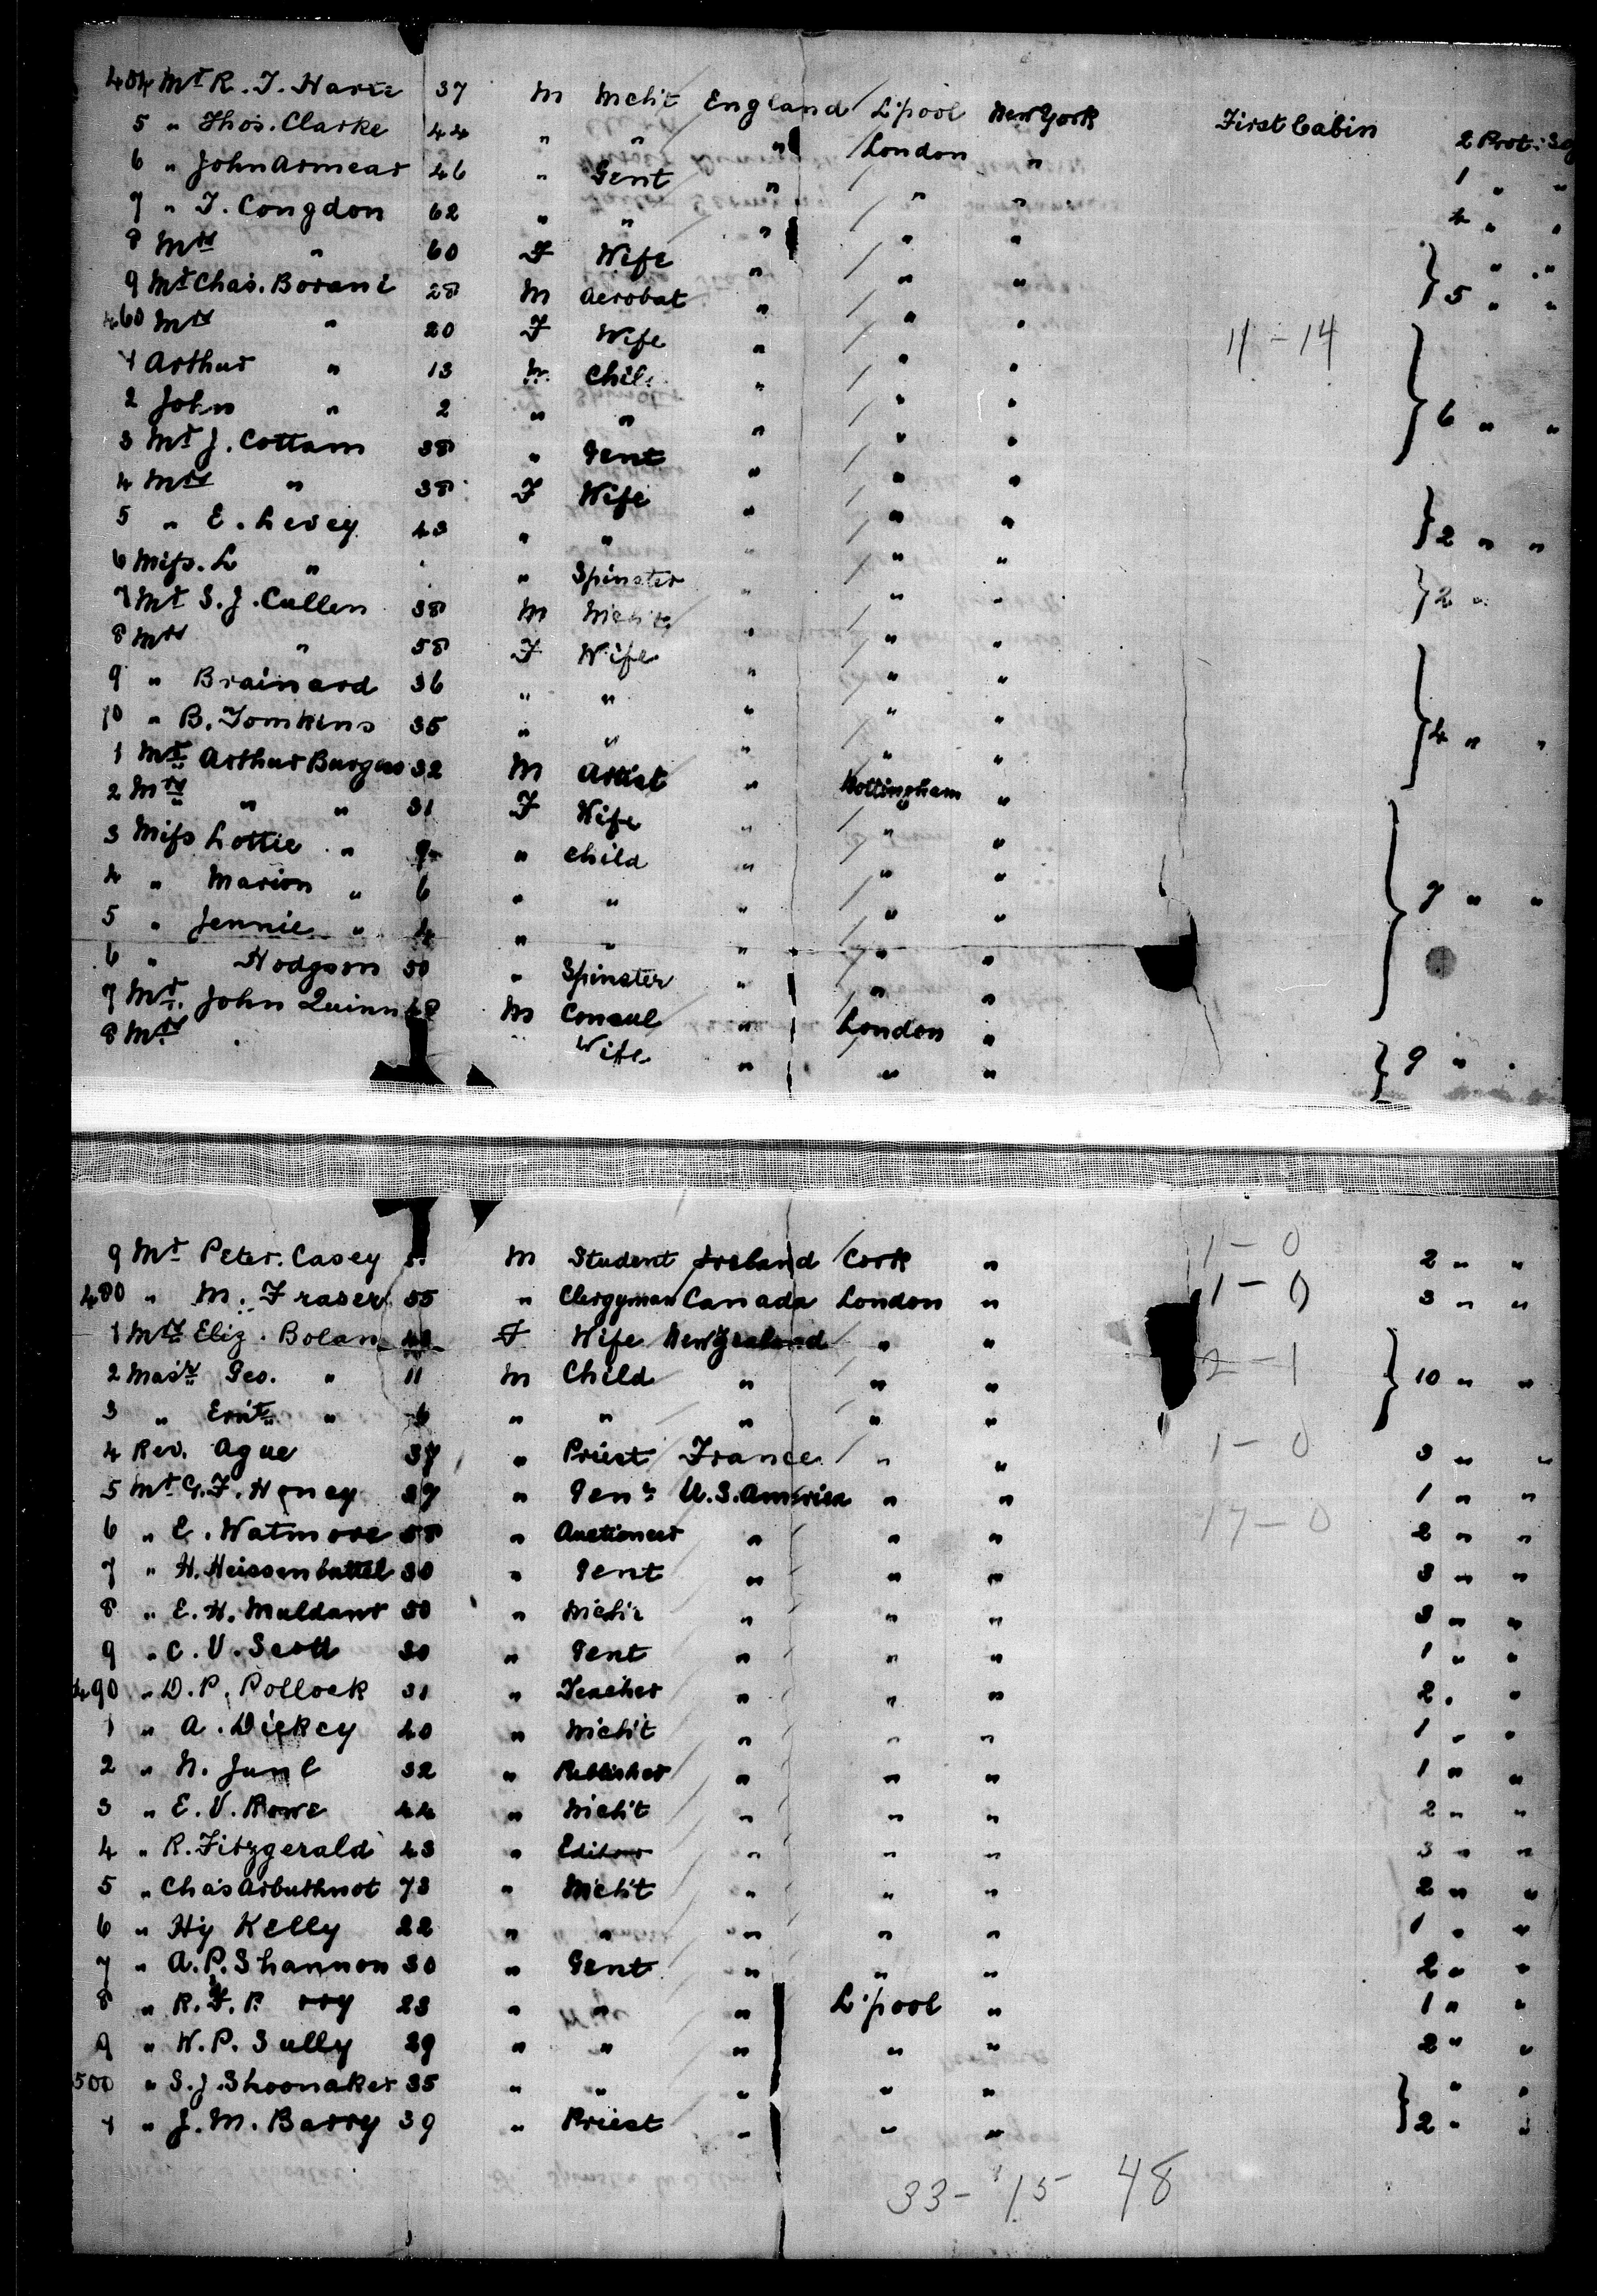 454 Mr R. T. Harte 37 M Mcht England L'pool New York First Cabin 2 Prot:
5 " Thos. Clarke 44 " " " London " 1 " "
6 " John Armear 46 " Gent " " " 4 " "
7 " T. Congdon 62 " " " " " " "
8 Mrs " 60 F Wife " " " } 5 " "
9 Mr Chas. Borani 28 M Acrobat " " "
460 Mrs " 20 F Wife " " " 11 - 14
1 Arthur " 13 M Chil " " "
2 John " 2 " " " " " } 6 " "
3 Mr J. Cottam 38 " Gent " " "
4 Mrs " 38 F Wife " " "
5 " E. Levey 43 " " " " " } 2 " "
6 Miss. L " " Spinster " " " } 2 "
7 Mr S. J. Cullen 38 M Mcht " " "
8 Mrs " 58 F Wife " " "
9 " Brainard 36 " " " " "
10 " B. Tomkins 35 " " " " " } 4 " "
1 Mr. Arthur Burgess 32 M Artist " Nottingham "
2 Mrs " " 31 F Wife " " "
3 Miss Lottie " 9 " Child " " "
4 " Marion " 6 " " " " " } 7 " "
5 " Jennie " 4 " " " " "
6 " Hodgson 50 " Spinster " " "
7 Mr. John Quinn 48 M Consul " London "
8 Mrs Wife " " " } 9 "
9 Mr Peter. Casey M Student Ireland Cork " 1 - 0 2 " "
480 " M. Fraser 55 " Clergyman Canada London " 1 - 0 3 " "
1 Mrs Eliz. Bolan F Wife New Zealand " "
2 Mas'r Geo. " 11 M Child " " " 2 - 1 } 10 " "
3 " Ern't " 6 " " " " "
4 Rev. Ague 37 " Priest France " " 1 - 0 3 " "
5 Mr G. F. H ney 29 " Gen' U.S. America " " 1 " "
6 " E. Watmore 58 " Auctioneer " " " 17 - 0 2 " "
7 " H. Heissenbattel 30 " Gent " " " 3 " "
8 " E. H. Muldant 50 " Mcht " " " 3 " "
9 " C. V. Scott 30 " Gent " " " 1 " "
490 " D. P. Pollock 31 " Teacher " " " 2 " "
1 " A. Dickey 40 " Mcht " " " 1 " "
2 " N. Junl 32 " Publisher " " " 1 " "
3 " E. V. Rowe 44 " Mcht " " " 2 " "
4 " R. Fitzgerald 43 " Editor " " " 3 " "
5 " Chas Arbuthnot 73 " Mcht " " " 2 " "
6 " Hy Kelly 22 " " " " " 1 " "
7 " A. P. Shannon 30 " Gent " " " 2 " "
8 " R. F. P rry 23 " " " L'pool " 1 " "
9 " W. P. Sully 29 " " " " " 2 " "
500 " S. J. Shoonaker 35 " " " " " " "
1 " J. M. Barry 39 " Priest " " " } 2 " "
33 - 15 48